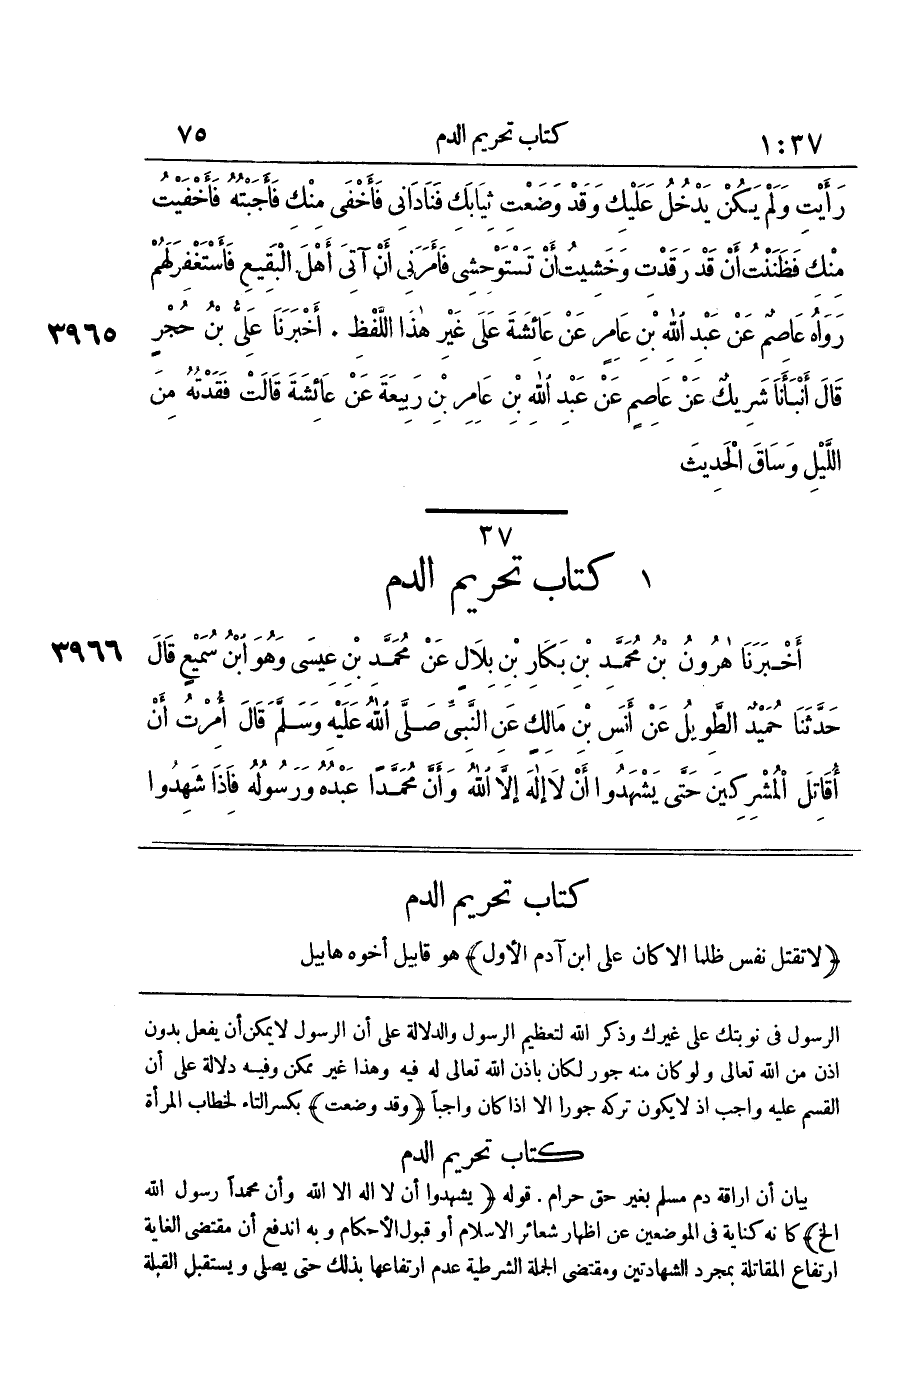 ١:٣٧ كتاب تحريم الدم ٧٥
رَأَيْتِ وَلَمْ يَكُنْ يَدْخُلُ عَلَيْكِ وَقَدْ وَضَعْتِ ثِيَابَكِ فَنَادَانِى فَأَخْفَى مِنْكِ فَأَجَبْتُهُ فَأَخْفَيْتُ
مِنْكِ فَظَنَنْتُ أَنْ قَدْ رَقَدْتِ وَخَشِيتُ أَنْ تَسْتَوْحِشِى فَأَمَرَنِى أَنْ آتِىَ أَهْلَ الْبَقِيعِ فَأَسْتَغْفِرَ لَهُمْ
رَوَاهُ عَاصِمٌ عَنْ عَبْدِ اللّٰهِ بْنِ عَامِرٍ عَنْ عَائِشَةَ عَلَى غَيْرِ هٰذَا اللَّفْظِ . أَخْبَرَنَا عَلِىُّ بْنُ حُجْرٍ ٣٩٦٥
قَالَ أَنْبَأَنَا شَرِيكٌ عَنْ عَاصِمٍ عَنْ عَبْدِ اللّٰهِ بْنِ عَامِرِ بْنِ رَبِيعَةَ عَنْ عَائِشَةَ قَالَتْ فَقَدْتُهُ مِنَ
اللَّيْلِ وَسَاقَ الْحَدِيثَ
٣٧
١ كتاب تحريم الدم
أَخْبَرَنَا هٰرُونُ بْنُ مُحَمَّدِ بْنِ بَكَّارِ بْنِ بِلَالٍ عَنْ مُحَمَّدِ بْنِ عِيسَى وَهُوَ ابْنُ سُمَيْعٍ قَالَ ٣٩٦٦
حَدَّثَنَا حُمَيْدٌ الطَّوِيلُ عَنْ أَنَسِ بْنِ مَالِكٍ عَنِ النَّبِىِّ صَلَّى اللّٰهُ عَلَيْهِ وَسَلَّمَ قَالَ أُمِرْتُ أَنْ
أُقَاتِلَ الْمُشْرِكِينَ حَتَّى يَشْهَدُوا أَنْ لَا إِلٰهَ إِلَّا اللّٰهُ وَأَنَّ مُحَمَّدًا عَبْدُهُ وَرَسُولُهُ فَاِذَا شَهِدُوا
كتاب تحريم الدم
﴿لا تقتل نفس ظلما الا كان على ابن آدم الأول﴾ هو قابيل أخوه هابيل
الرسول فى نوبتك على غيرك وذكر الله لتعظيم الرسول والدلالة على أن الرسول لا يمكن أن يفعل بدون
اذن من الله تعالى ولو كان منه جور لكان باذن الله تعالى له فيه وهذا غير ممكن وفيه دلالة على أن
القسم عليه واجب اذ لا يكون تركه جورا الا اذا كان واجباً ﴿وقد وضعت﴾ بكسر التاء لخطاب المرأة
كتاب تحريم الدم
بيان أن اراقة دم مسلم بغير حق حرام . قوله ﴿يشهدوا أن لا اله الا الله وأن محمداً رسول الله
الخ﴾ كأنه كناية فى الموضعين عن اظهار شعائر الاسلام أو قبول الأحكام وبه اندفع أن مقتضى الغاية
ارتفاع المقاتلة بمجرد الشهادتين ومقتضى الجملة الشرطية عدم ارتفاعها بذلك حتى يصلى ويستقبل القبلة